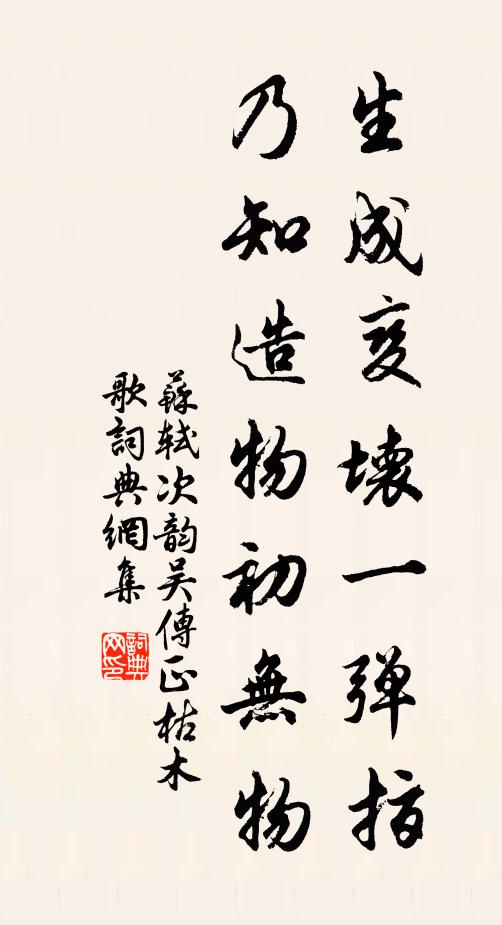 生成变壞一弹指
乃知造物初無物
蘇軾次韵吴傳正枯木
歌詞典網集
詞典网印